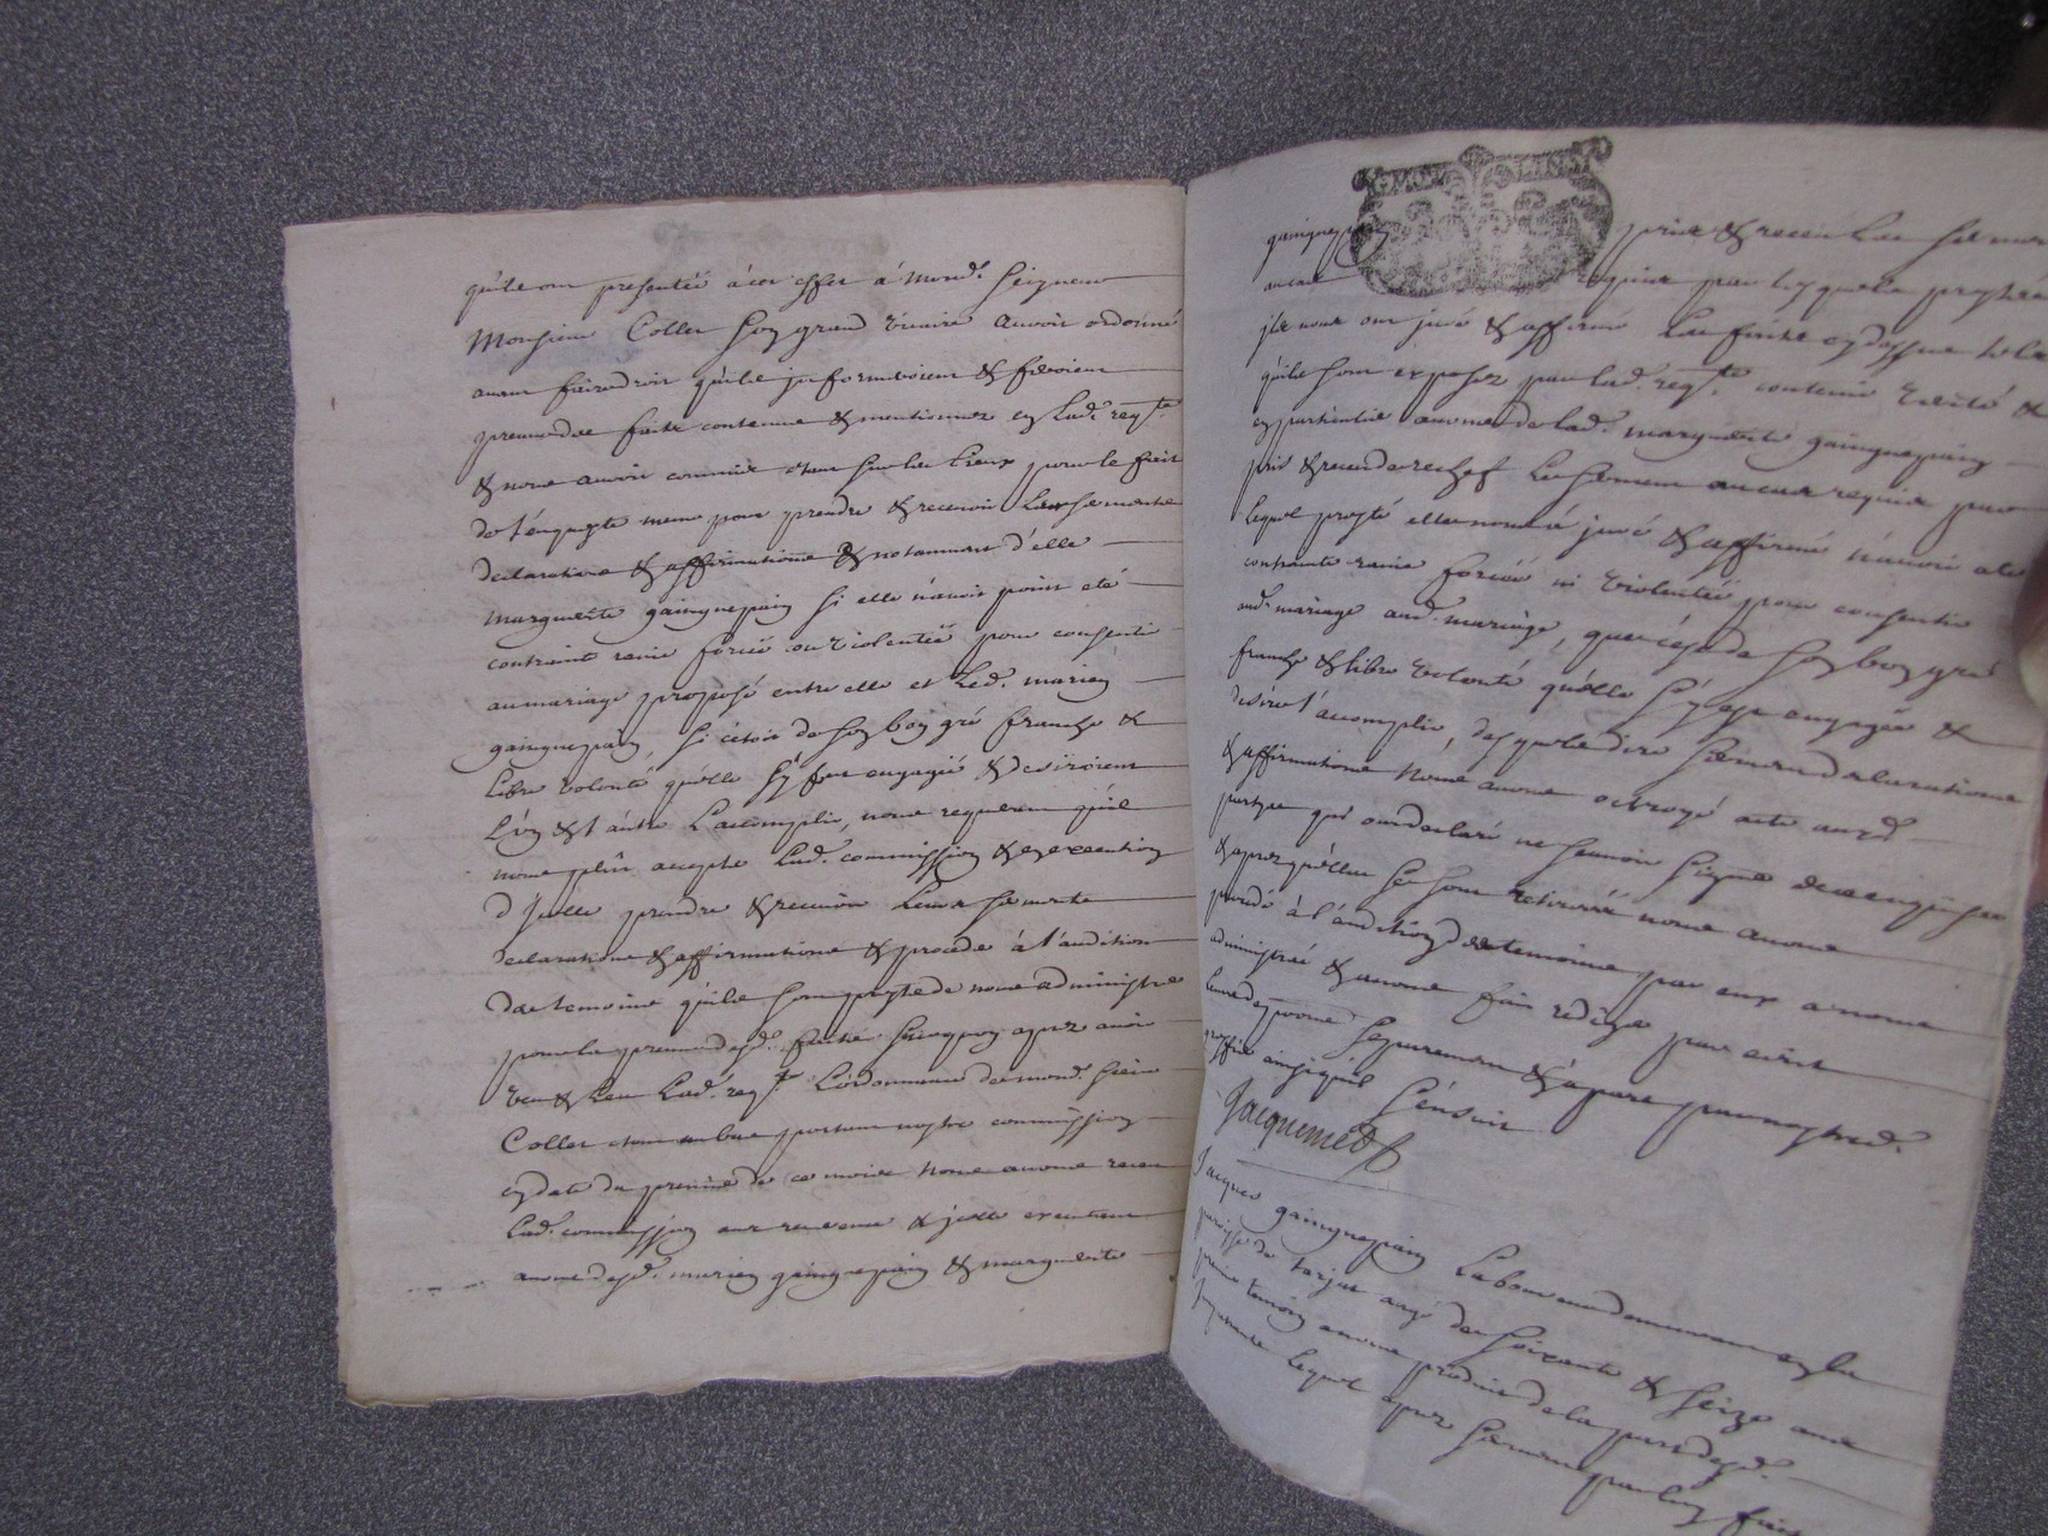 quils ont presentée a cet effet á mond. Seigneur
Monsieur Collet son grand vicaire auroit ordonné
avant faire droit quils informeroient & feroient
preuve des faits contenus & mentionnez en lad. req.te
& nous auroit commis etant sur les lieux pour le fait
de l'enqueste meme pour prendre & recevoir leurs serments
declarations & affirmations & notamment d'elle
marguerite gaingnepain si elle n'avoit point eté
contraint ravie forcée ou violentée pour consentir
au mariage proposé entre elle et led. marien
gaingnepain, si c'etoit de son bon gré franche &
libre volonté quelle s'y fut engagée & desiroient
l'un & l'autre l'accomplir, nous requerant quil
nous plût accepter lad. commission & en execution
d'Icelle prendre & recevoir leurs serments
declarations & affirmations & proceder à l'audition
des temoins quils sont prests de nous administrer
pour la preuve desd. faits surquoy aprez avoir
veu & leu lad. req.te l'ordonnance de mond. sieur
Collet etant au bas portant nostre commission
en date du premier de ce mois Nous avons receu
lad. commission avec reverence & icelle executant
avons desd. marien gaingnepain & marguerite
gaingnepain pris & receu les serments
au cas requis par lesquels prestés
ils nous ont juré & affirmé les faits cy dessus tels
quils sont exposez par lad. req.te contenir verité &
en particulier avons de lad. marguerite gaingnepain
pris & receu de rechef le serment au cas requis par
lequel presté elle nous a juré & affirmé n'avoir eté
contrainte ravie forcée ni violentée pour consentir
aud. mariage aud. mariage, que c'est de son bon gré
franche & libre volonté quelle s'y est engagée &
desire l'accomplir, desquels dire serment declarations
& affirmations Nous avons octroyé acte auxd.
partyes qui ont declaré ne sçavoir signer de ce enquises
& aprez quelles se sont retirées nous avons
procedé à l'audition des temoins par eux a nous
administrés & avons fait rediger par ecrit
leurs depositions separement & à part par nostred.
greffier ainsi quil s'ensuit
Jacquemet
Jacques gaingnepain laboureur demeurant en la
paroisse de tarjat agé de soixante & seize ans
premier temoin a nous produit de la part desd.
Impetrants lequel aprez serment par luy fait